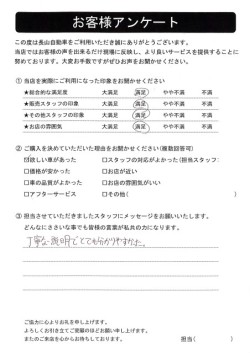 お客様アンケート
この度は長山自動車をご利用いただき誠にありがとうございます。
当店ではお客様の声を出来るだけ現場に反映し、より良いサービスを提供することに
努めております。大変お手数ですがぜひお声をお聞かせください。
① 当店を実際にご利用になった印象をお聞かせください
★総合的な満足度 大満足 満足 やや不満 不満
★販売スタッフの印象 大満足 満足 やや不満 不満
★その他スタッフの印象 大満足 満足 やや不満 不満
★お店の雰囲気 大満足 満足 やや不満 不満
② ご購入を決めていただいた理由をお聞かせください(複数回答可)
☑欲しい車があった □スタッフの対応がよかった(担当スタッフ:
□価格が安かった □お店が近い
□車の品質がよかった □お店の雰囲気がいい
□アフターサービス □その他( )
③ 担当させていただきましたスタッフにメッセージをお願いいたします。
どんなにささいな事でも皆様の言葉が私共の力になります。
丁寧な説明でとてもわかりやすかった。
ご協力に心よりお礼を申し上げます。
よろしくお引き立てご愛顧のほどお願い申し上げます。
またのご来店を心からお待ちしております。 担当( )